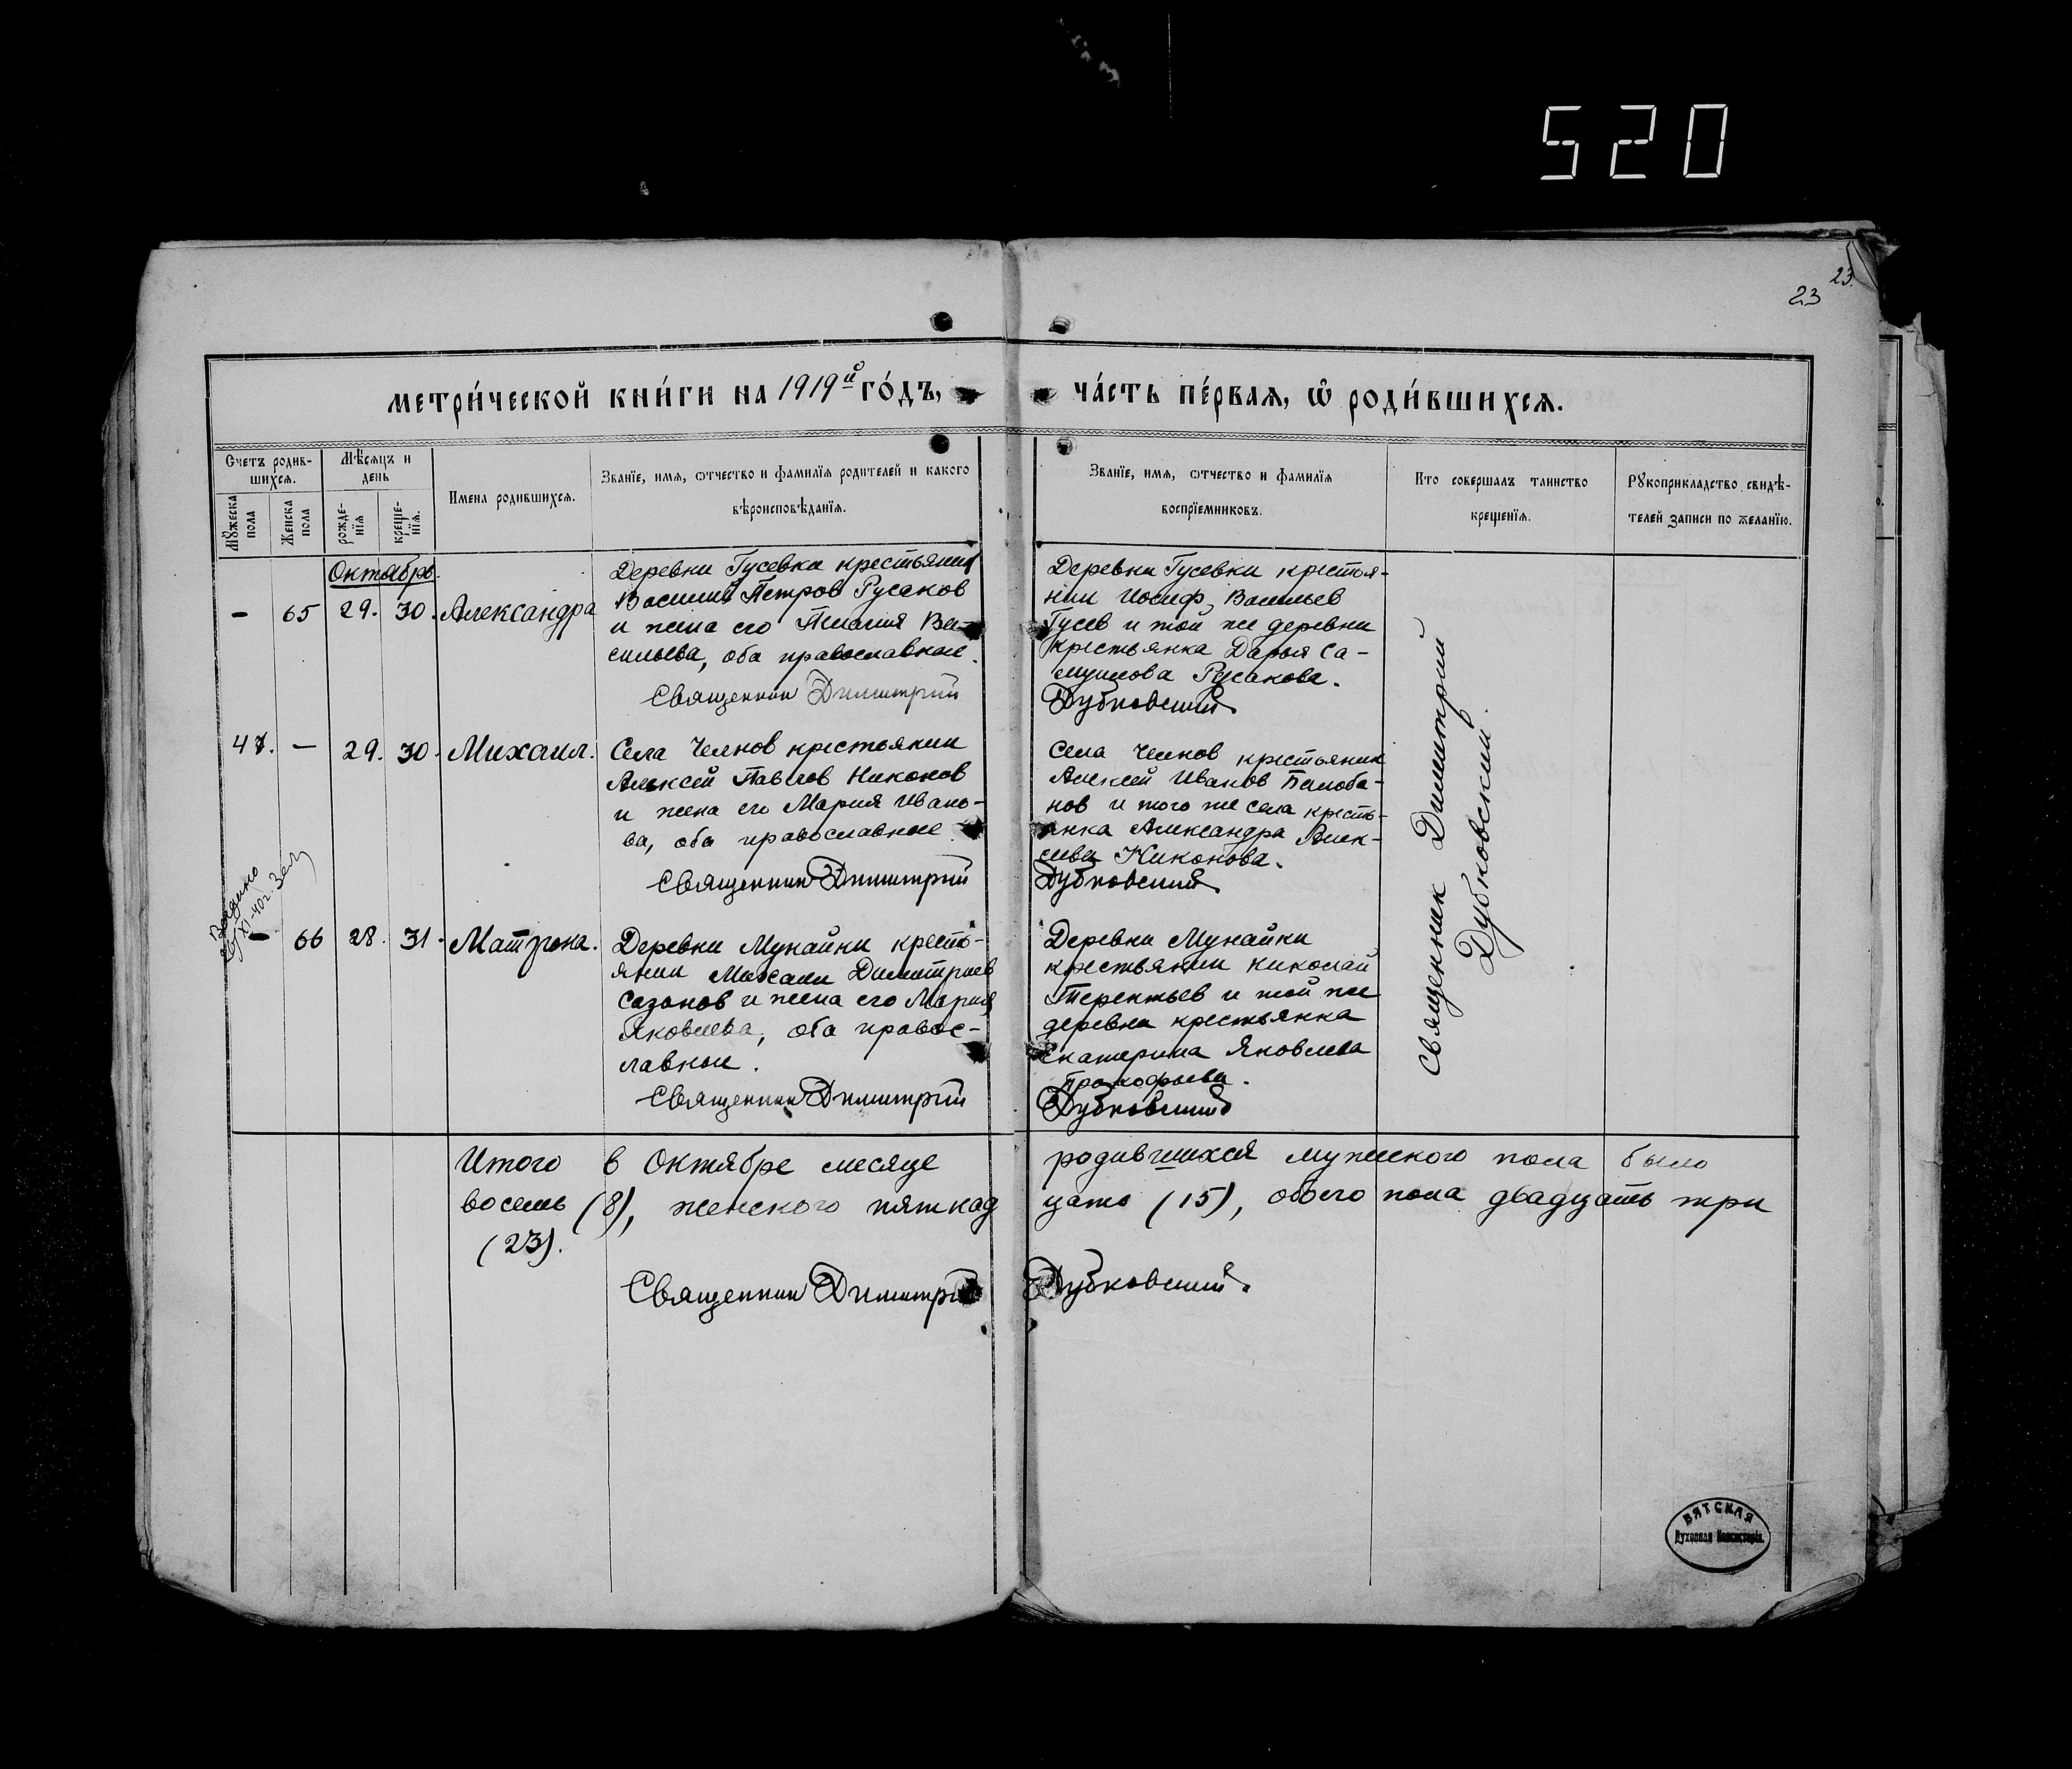 520
23
23
метри́ческой кни́ги на 1919й го́дъ,
ча́сть пе́рвая, ѡ҆ роди́вшихся.
Счетъ родив-
шихся.
Мѣсяцъ и
день
Мужеска
пола
Женска
пола
рожде-
нїя
креще-
нїя.
Имена родившихся.
Званїе, имя, ѿчество и фамилїя родителей и какого
вѣроисповѣданїя.
Званїе, имя, ѿчество и фамилїя
воспрїемниковъ.
Кто совершалъ таинство
крещенїя.
Рукоприкладство свидѣ-
телей записи по желанїю.
Октябрь.
— 65 29. 30. Александра
Деревни Гусевки крестьянин
Василий Петров Русаков
и жена его Ва-
сильева, оба православные.
Священник Димитрий
Деревни Гусевки крестья-
нин Иосиф Васильев
Гусев и той же деревни
крестьянка Дарья Са-
муилова Русакова.
Дубковский.
47. — 29. 30. Михаил.
Села Челнов крестьянин
Алексей Павлов Никонов
и жена его Мария Ивано-
ва, оба православные
Священник Димитрий
Села Челнов крестьянин
Алексей Иванов
и того же села кресть-
янка Александра Алек-
сеева Никонова.
Дубковский.
Выдано
— 66 28. 31. Матрона.
Деревни Мунайки кресть-
янин Михаил Димитриев
Сазонов и жена его Мария
Яковлева, оба правос-
лавные.
Священник Димитрий
Деревни Мунайки
крестьянин Николай
Терентьев и той же
деревни крестьянка
Екатерина Яковлева
Прокофьева.
Дубковский
Священник Димитрий
Дубковский.
Итого в Октябре месяце родившихся мужского пола было
восемь (8), женского пятнад цать (15), обоего пола двадцать три
(23).
Священник Димитрий Дубковский.
ВЯТСКАЯ
Духовная Консисторія.